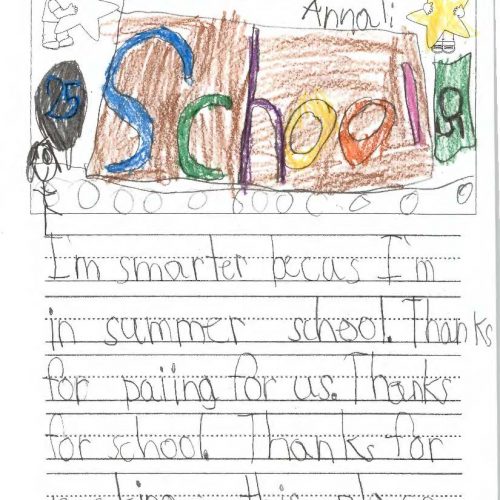 Annali
25 School
I'm smarter becus I'm
in summer school. Thanks
for paiing for us. Thanks
for school. Thanks for
this